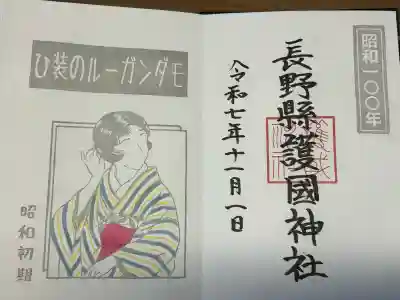 昭和一〇〇年
長野縣護國神社
令和七年十一月一日
モダンガールの装ひ
昭和初期